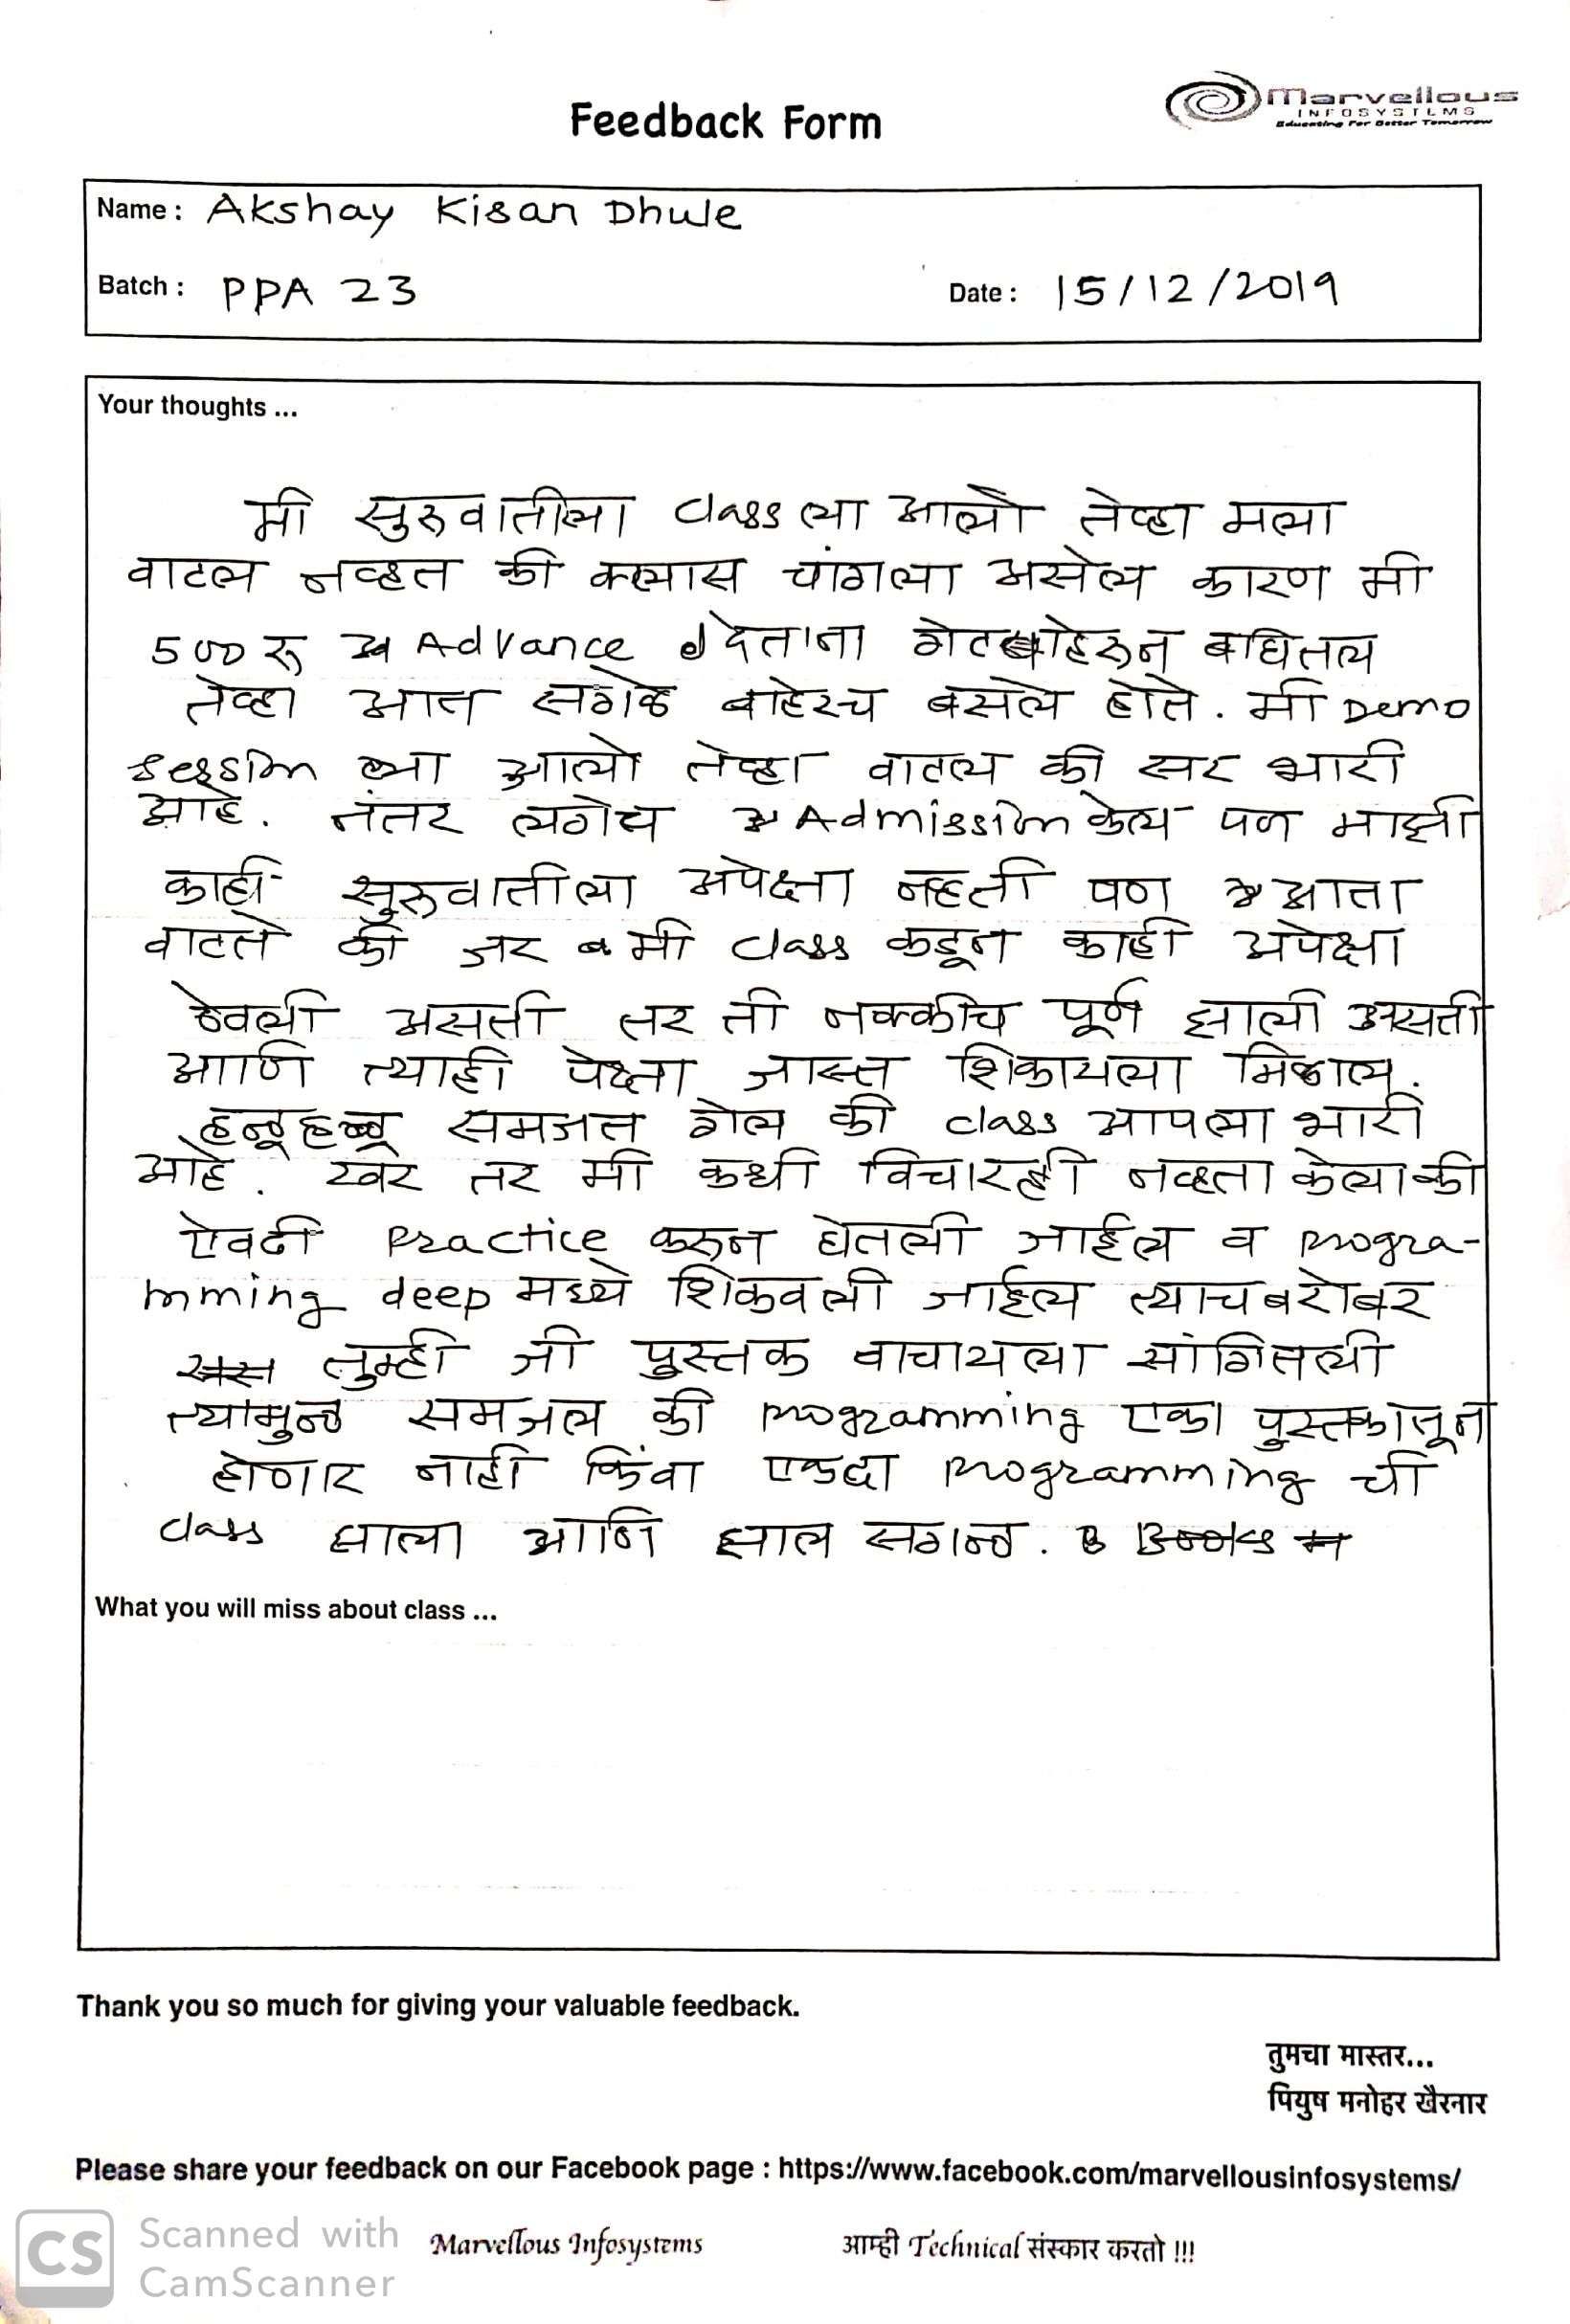 Marvellous
INFOSYSTEMS
Educating For Better Tomorrow
Feedback Form
Name : Akshay Kisan Dhule
Batch : PPA 23 Date : 15/12/2019
Your thoughts ...
मी सुरुवातीला class ला आलो तेव्हा मला
वाटल नव्हत की क्लास चांगला असेल कारण मी
500 रू Advance देताना गेटबाहेरून बघितल
तेव्हा आत सगळे बाहेरच बसले होते. मी Demo
session ला आलो तेव्हा वाटल की सर भारी
आहे. नंतर लगेच Admission केल पण माझी
काही सुरुवातीला अपेक्षा नहती पण आता
वाटते की जर मी class कडून काही अपेक्षा
ठेवली असती तर ती नक्कीच पूर्ण झाली असती
आणि त्याही पेक्षा जास्त शिकायला मिळाल.
हळूहळू समजत गेल की class आपला भारी
आहे. खरं तर मी कधी विचारही नव्हता केला की
ऐवढी Practice करून घेतली जाईल व progra-
mming deep मध्ये शिकवली जाईल त्याचबरोबर
तुम्ही जी पुस्तक वाचायला सांगितली
त्यामुळ समजल की programming एका पुस्तकातून
होणार नाही किंवा एकदा programming ची
class झाला आणि झाल सगळ. Books
What you will miss about class ...
Thank you so much for giving your valuable feedback.
तुमचा मास्तर...
पियुष मनोहर खैरनार
Please share your feedback on our Facebook page : https://www.facebook.com/marvellousinfosystems/
Marvellous Infosystems आम्ही Technical संस्कार करतो !!!
CS Scanned with
CamScanner